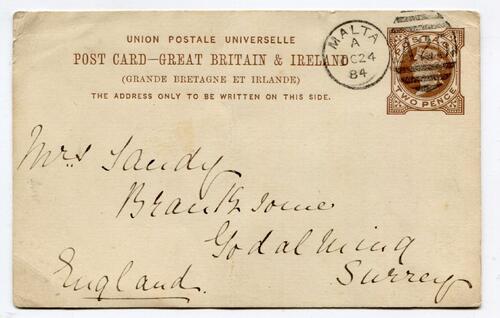 UNION POSTALE UNIVERSELLE
POST CARD—GREAT BRITAIN & IRELAND
(GRANDE BRETAGNE ET IRLANDE)
THE ADDRESS ONLY TO BE WRITTEN ON THIS SIDE.
MALTA
A
OC24
84
POSTAGE
TWO PENCE
Mrs Sandy
Branksome
Godalming
Surrey
England.